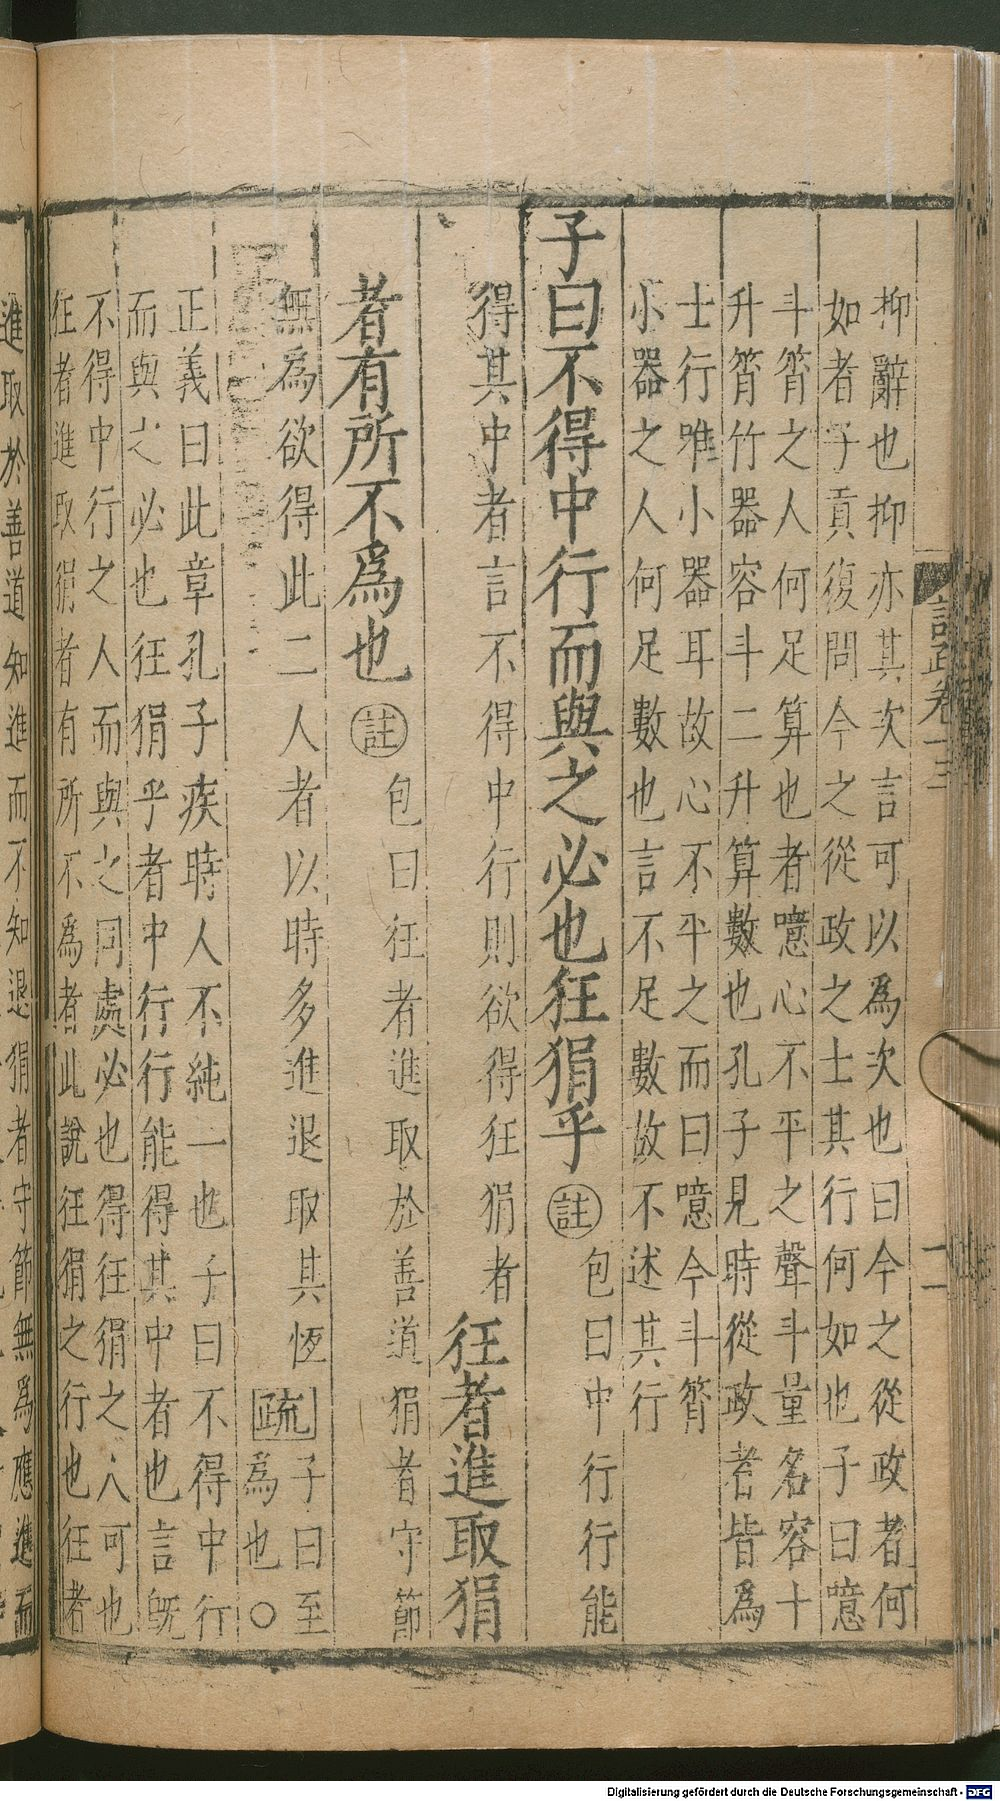 抑辭也抑亦其次言可以為次也曰今之從政者何
如者子貢復問今之從政之士其行何如也子曰噫
斗筲之人何足算也者噫心不平之聲斗量名容十
升筲竹器容斗二升算數也孔子見時從政者皆為
士行唯小器耳故心不平之而曰噫今斗筲
小器之人何足數也言不足數故不述其行
子曰不得中行而與之必也狂狷乎註
包曰中行行能
得其中者言不得中行則欲得狂狷者
狂者進取狷
者有所不為也註
包曰狂者進取於善道狷者守節
無為欲得此二人者以時多進退取其恆
疏
子曰至
為也○
正義曰此章孔子疾時人不純一也子曰不得中行
而與之必也狂狷乎者中行行能得其中者也言旣
不得中行之人而與之同處必也得狂狷之人可也
狂者進取狷者有所不為者此說狂狷之行也狂者
進取於善道知進而不知退狷者守節無為應進而
Digitalisierung gefördert durch die Deutsche Forschungsgemeinschaft - DFG